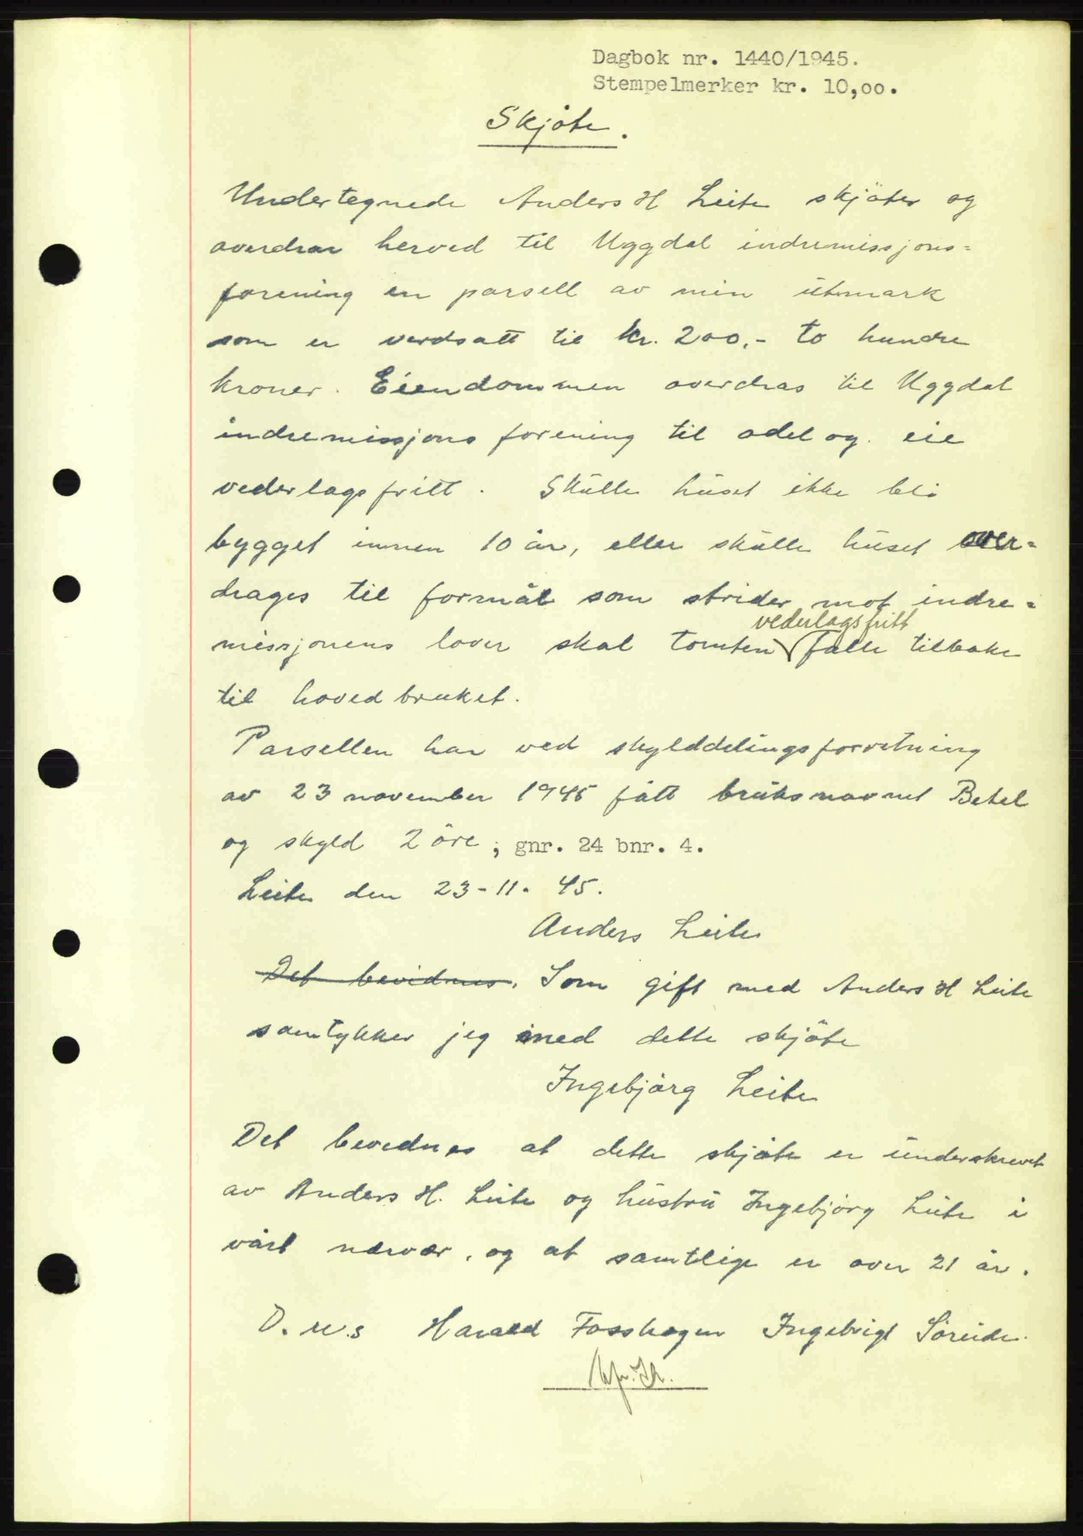 Dagbok nr. 1440/1945.
Stempelmerker kr. 10,00.
Skjöte.
Undertegnede Anders H Leite skjöter og
overdrar herved til Uggdal indremissjons=
forening en parsell av min utmark
som er verdsatt til kr. 200.- to hundre
kroner. Eiendommen overdras til Uggdal
indremissjons forening til odel og eie
vederlagsfritt. Skulle huset ikke bli
bygget innen 10 år, eller skulle huset over=
drages til formål som strider mot indre=
vederlagsfritt
missjonens lover skal tomten falle tilbake
til hovedbruket.
Parsellen har ved skylddelingsforretning
av 23 november 1945 fått bruksnavnet Betel
og skyld 2 öre; gnr. 24 bnr. 4.
Leite den 23-11-45.
Anders Leite
Det bevidnes. Som gift med Anders H Leite
samtykker jeg med dette skjöte
Ingebjörg Leite
Det bevidnes at dette skjöte er underskrevet
av Anders H. Leite og hustru Ingebjörg Leite i
vårt nærvær, og at samtlige er over 21 år.
D. u. s Harald Fosshagen Ingebrigt Söreide.